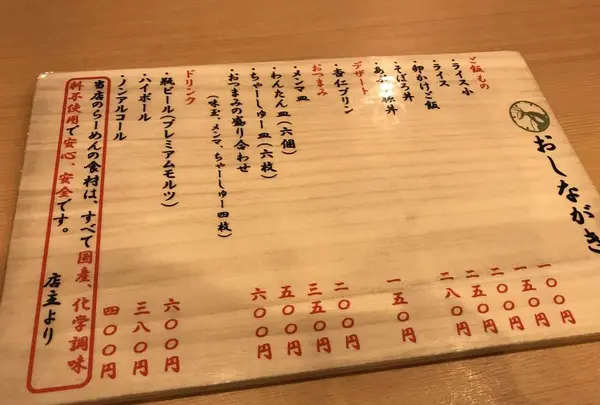 おしながき
ご飯もの
・ライス小 一〇〇円
・ライス 一五〇円
・卵かけご飯 二〇〇円
・そぼろ丼 二五〇円
・あぶり豚丼 二八〇円
デザート
・杏仁プリン 一五〇円
おつまみ
・メンマ皿 二〇〇円
・わんたん皿(六個) 三五〇円
・ちゃーしゅー皿(六枚) 五五〇円
・おつまみの盛り合わせ 六〇〇円
(味玉、メンマ、ちゃーしゅー四枚)
ドリンク
・瓶ビール(プレミアムモルツ) 六〇〇円
・ハイボール 三八〇円
・ノンアルコール 四〇〇円
当店のらーめんの食材は、すべて国産、化学調味
料不使用で安心、安全です。
店主より